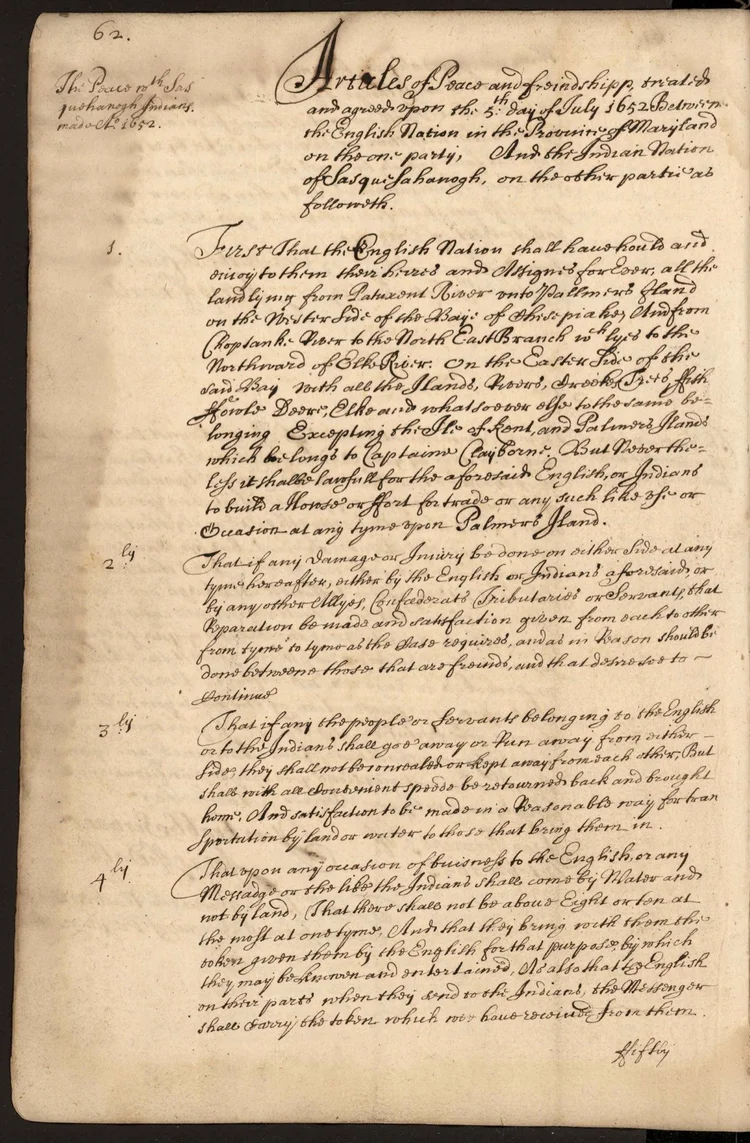 62.
The Peace wth Sas
quehanogh Indians
made Ao. 1652.
Articles of Peace and freindshipp, treated
and agreed upon the 5th day of July 1652 Betweene
the English Nation in the Province of Maryland
on the one party; And the Indian Nation
of Sasquesahanogh, on the other partie as
followeth.
1. First That the English Nation shall have hould and
enioy to them their heires and Assignes for Ever, all the
land lying from Patuxent River unto Pallmers Iland
on the Wester side of the Baye of Chesepiake, And from
Choptanke River to the North East Branch wch lyes to the
Northward of Elke River. On the Easter Side of the
said Bay with all the Ilands, Rivers, Creeks, Trees ffish
ffowle Deere, Elke and whatsoever else to the same be=
longing Excepting the Ile of Kent, and Palmers Ilands
which belongs to Captaine Clayborne, But Neverthe=
less it shalbe lawfull for the aforesaid English, or Indians
to build a Howse or ffort for trade or any such like use or
Occasion at any tyme upon Palmers Iland.
2ly That if any Damage or Iniury be done on either side at any
tyme hereafter, either by the English or Indians aforesaid, or
by any other Allyes, Confaderats Tributaries or Servants, that
Reparation be made and satisfaction given from each to other
from tyme to tyme as the Case requires, and as in Reason should be
done betweene those that are freinds, and that desire soe to
Continue
3ly That if any the people or Servants belonging to the English
or to the Indians shall goe away or Run away from either
side, they shall not be concealed or kept away from each other, But
shall with all Convenient speede be retourned back and brought
home, And satisfaction to be made in a Reasonable way for tran
sportation by land or water to those that bring them in.
4ly That upon any occasion of buisness to the English, or any
Messadge or the like the Indians shall come by Water and
not by land, That there shall not be above Eight or ten at
the most at one tyme, And that they bring with them the
token given them by the English for that purpose, by which
they may be knowen and entertained, As also that English
on their parts when they send to the Indians, the Messenger
shall Carry the token which wee have received from them.
ffiftly